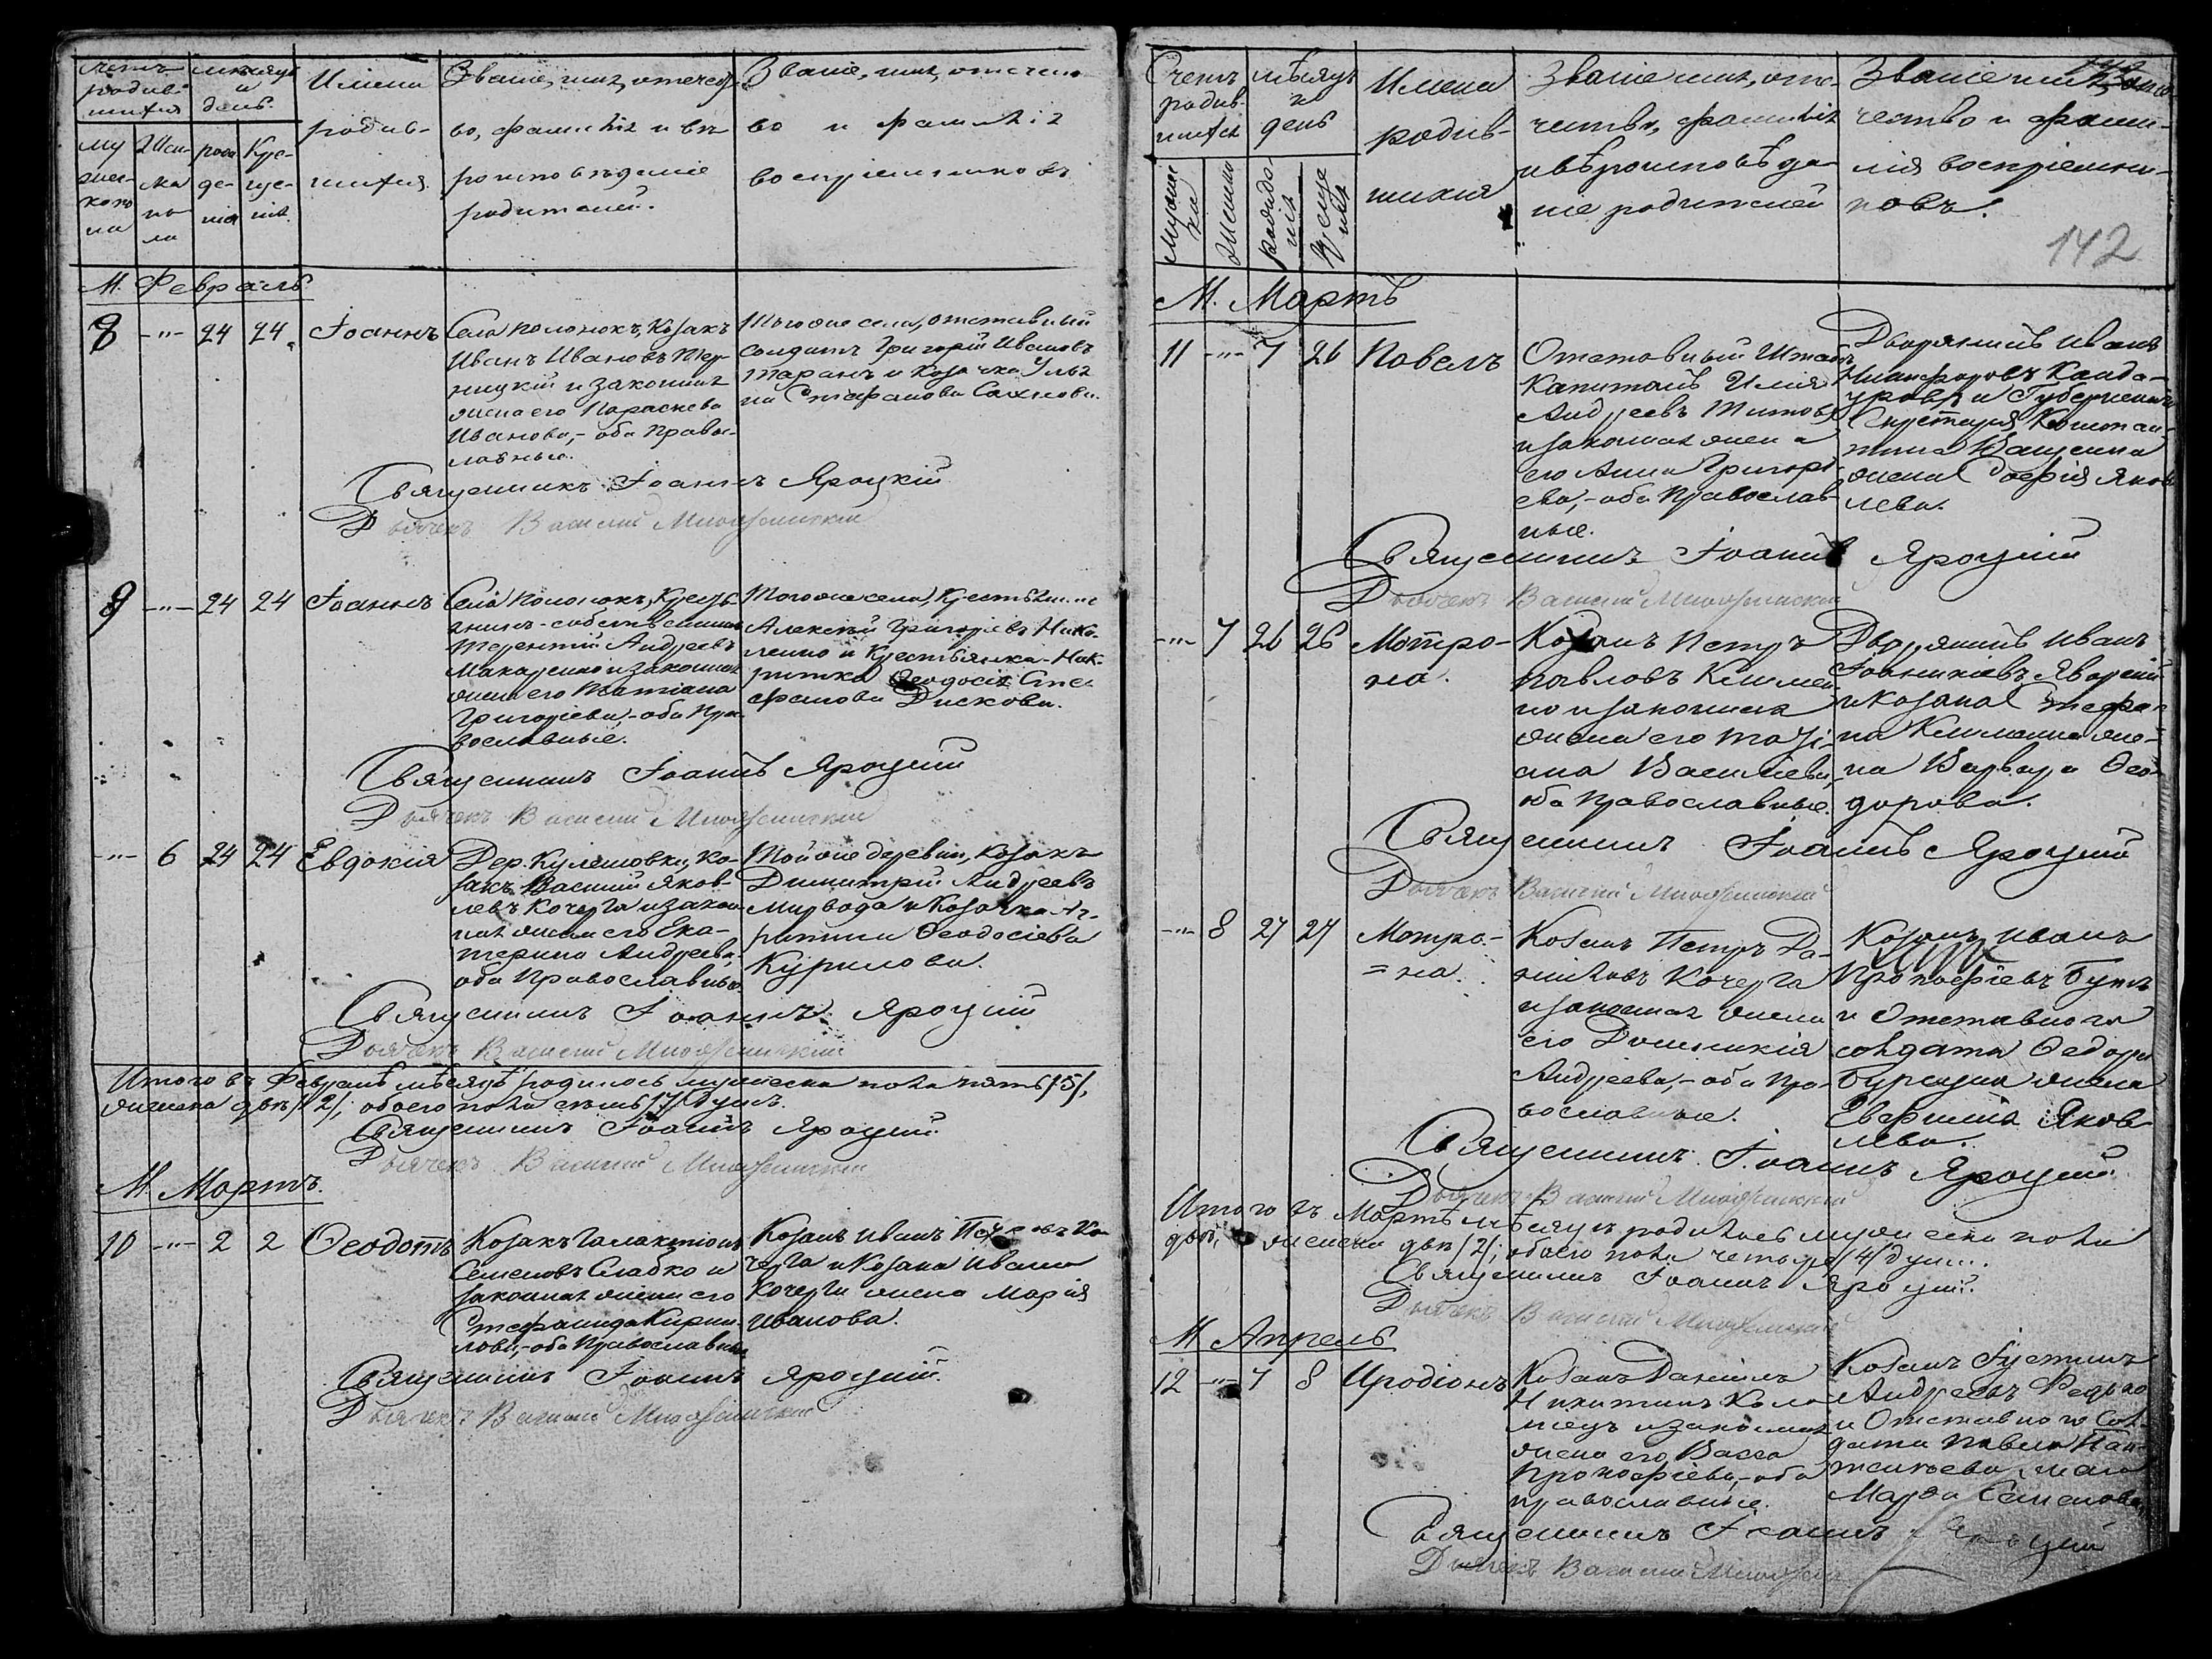 Счетъ родив-шихся
мѣсяцъ и день.
Имена родив-шихся.
Званіе, имя, отечест-
во, фамилія и вѣ-
роисповѣданіе
родителей.
Званіе, имя, отечест-
во и фамилія
воспріемниковъ
му
жес-
каго
по
Жен-
ска
по
ла
рож
де-
нія
Кре-
ще-
нія.
М. Февраль
8 -"- 24 24 Іоаннъ
Села Полонокъ, Козакъ
Иванъ Ивановъ
и законная
жена его Параскева
Иванова, - оба Право-
славные.
Того же села, отставный
солдатъ Григорій Ивановъ
Таранъ и Козачка Улья
на Стефанова
Священникъ Іоаннъ Яроцкій
Дьячекъ Василий
9 -"- 24 24 Іоаннъ
Села Полонокъ, Кресть-
янинъ-собственникъ
Терентій Андреевъ
Макаренко и законная
жена его Татіана
Григоріева, - оба Пра-
вославные.
Того же села, Крестьянинъ
Алексѣй Григоріевъ Нико-
ленко и Крестьянка
Ѳеодосія Сте-
фанова Дискова.
Священникъ Іоаннъ Яроцкій
Дьячекъ Василий
-"- 6 24 24 Евдокія
Дер. Кулешовки, Ко-
закъ Василий Яков-
левъ Кочерга и закон-
ная жена его Ека-
терина Андреева,
оба Православные.
Той же деревни, Козакъ
Димитрій Андреевъ
Мирвода и Козачка Аг-
рипина Ѳеодосіева
Курилова.
Священникъ Іоаннъ Яроцкій
Дьячекъ Василий
Итого въ Февралѣ мѣсяцѣ родилось мужеска пола пять /5/,
женска двѣ /2/, обоего пола семь /7/ душъ.
Священникъ Іоаннъ Яроцкій
Дьячекъ Василий
М. Мартъ.
10 -"- 2 2 Ѳеодотъ
Козакъ Галактіонъ
Семеновъ Сладко и
законная жена его
Стефанида Кирил-
лова, - оба Православные
Козакъ Иванъ Петровъ Ко
черга и Козака Ивана
Кочерги жена Марія
Иванова.
Священникъ Іоаннъ Яроцкій.
Дьячекъ Василий
Счетъ
родив-
шихся
мѣсяцъ
и
день
Имена
родив-
шихся
Званіе имя, оте-
чество, фамилія
и вѣроисповѣда-
ніе родителей
Званіе имя, оте-
чество и фами-
лія воспріемни-
ковъ.
142
М. Мартъ
11 -"- 7 26 Павелъ
Отставный Штабсъ
Капитанъ Илія
Андреевъ Титовъ
и законная жена
его Анна Григорі-
ева, - оба Православ-
ные.
Дворянинъ Иванъ
Никифоровъ Канда-
уровъ и Губернскаго
Секретаря Констан-
тина Ващенка
жена Софія Яков
лева.
Священникъ Іоаннъ Яроцкій
Дьячекъ Василий
-"- 7 26 26 Матро-
на.
Козакъ Петръ
Павловъ Климен-
ко и законная
жена его Тати-
ана Василіева,
оба Православные.
Дворянинъ Иванъ
Іоанникіевъ Яворскій
и Козака Стефа-
на Клименка же-
на Варвара Ѳео-
дорова.
Священникъ Іоаннъ Яроцкій
Дьячекъ Василий
-"- 8 27 27 Матро-
=на.
Козакъ Петръ Да-
ниловъ Кочерга
и законная жена
его Домникія
Андреева, - оба Пра-
вославные.
Козакъ Иванъ
Прокофіевъ Бутъ
и Отставнаго
солдата Ѳедора
Бурсука жена
Евфимія Яков-
лева.
Священникъ Іоаннъ Яроцкій
Дьячекъ Василий
Итого въ Мартѣ мѣсяцѣ родилось мужеска пола
двѣ, женска двѣ /2/, обоего пола четыре /4/ душъ.
Священникъ Іоаннъ Яроцкій.
Дьячекъ Василий
М. Апрель
12 -"- 7 8 Иродіонъ
Козакъ Даніилъ
Никитинъ Коло-
мецъ и законная
жена его Васса
Прокофіева, - оба
православные.
Козакъ Іустинъ
Андреевъ Редько
и Отставнаго Сол-
дата Павла Пан-
жена
Марѳа Семенова
Священникъ Іоаннъ Яроцкій
Дьячекъ Василий